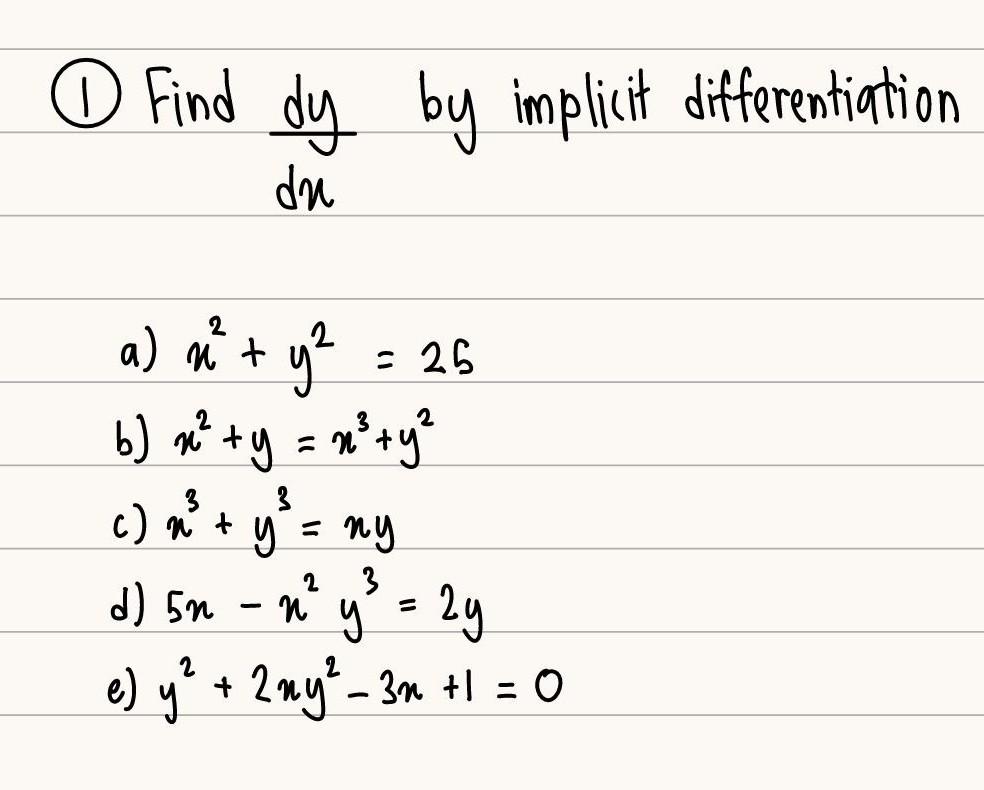 ① Find dy by implicit differentiation
dx
a) x² + y² = 25
b) x² + y = x³ + y²
c) x³ + y³ = xy
d) 5x - x² y³ = 2y
e) y² + 2xy² - 3x + 1 = 0